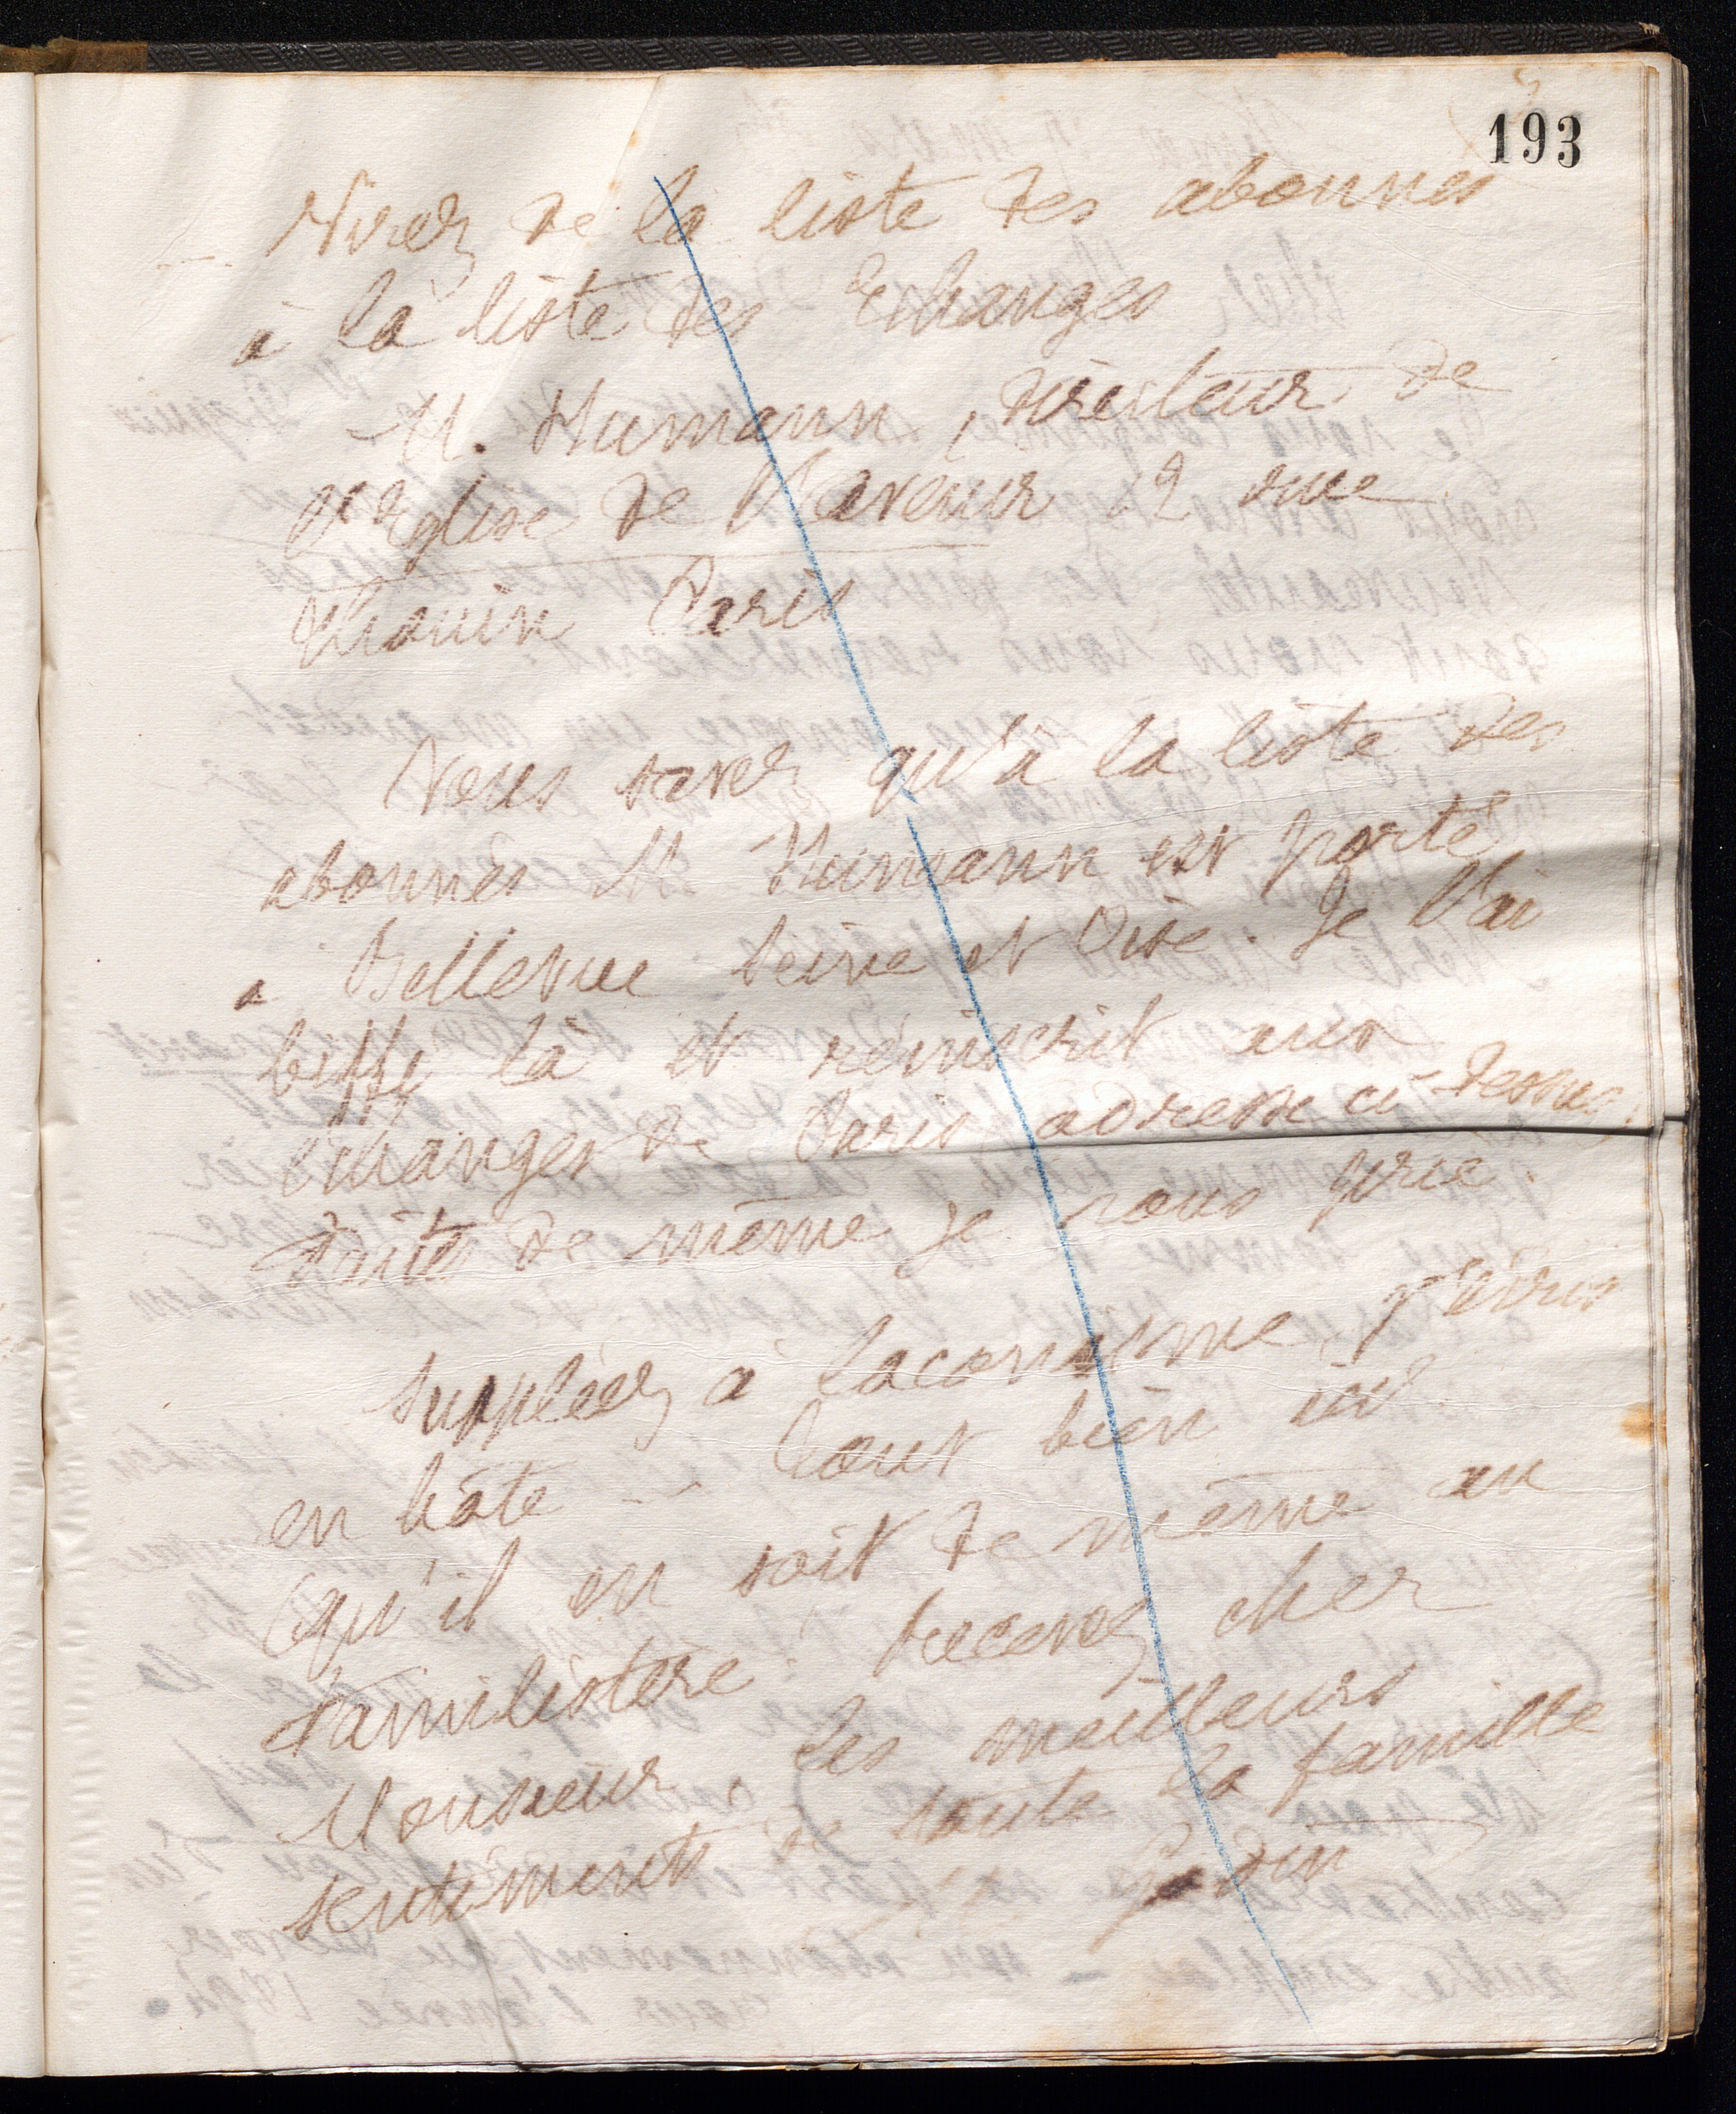 193
— Virez de la liste des abonnés
à la liste des Echanges
M. Humann, directeur de
l'Eglise de l'avenir 2 rue
Thouin Paris
Vous savez qu'à la liste des
abonnés M. Humann est porté
à Bellevue Seine et Oise. Je l'ai
biffé là et réinscrit aux
échanges de Paris adresse ci-dessus.
Faites de même je vous prie.
Suppléez à laconisme, j'écris
en hâte — Tout bien ici
Qu'il en soit de même au
Familistère. Recevez cher
Monsieur, les meilleurs
sentiments de toute la famille
Godin